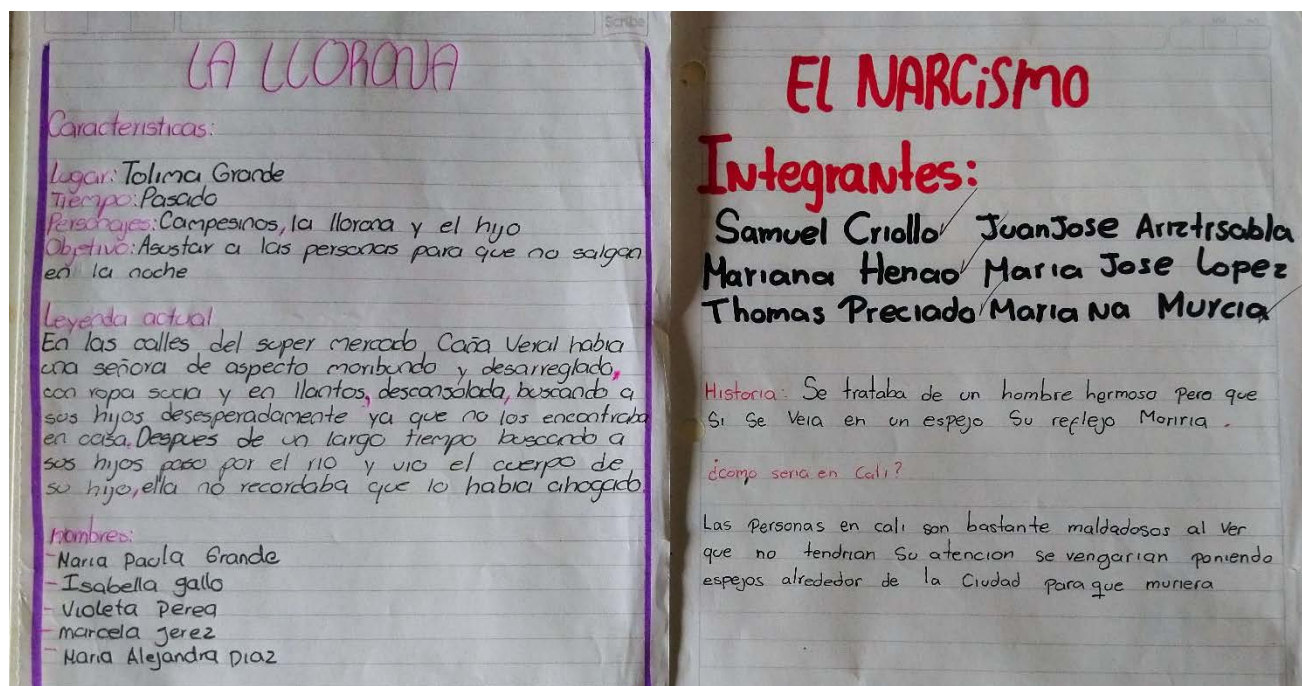 Scribe
LA LLORONA
Caracteristicas:
Lugar: Tolima Grande
Tiempo: Pasado
Personajes: Campesinos, la llorona y el hijo
Objetivo: Asustar a las personas para que no salgan
en la noche
Leyenda actual
En las calles del super mercado Caña Veral habia
una señora de aspecto moribundo y desarreglado,
con ropa sucia y en llantos, desconsolada, buscando a
sus hijos desesperadamente ya que no los encontraba
en casa. Despues de un largo tiempo buscando a
sus hijos paso por el rio y vio el cuerpo de
su hijo, ella no recordaba que lo habia ahogado
nombres:
- Maria Paola Grande
- Isabella gallo
- Violeta Perea
- marcela jerez
- Maria Alejandra Diaz
EL NARCISMO
Integrantes:
Samuel Criollo JuanJose
Mariana Henao Maria Jose Lopez
Thomas Preciado Mariana Murcia
Historia: Se trataba de un hombre hermoso Pero que
Si Se Veia en un espejo Su reflejo Moriria.
¿como seria en Cali?
Las Personas en cali son bastante maldadosos al Ver
que no tendrian Su atencion se vengarian poniendo
espejos alrededor de la Ciudad para que muriera